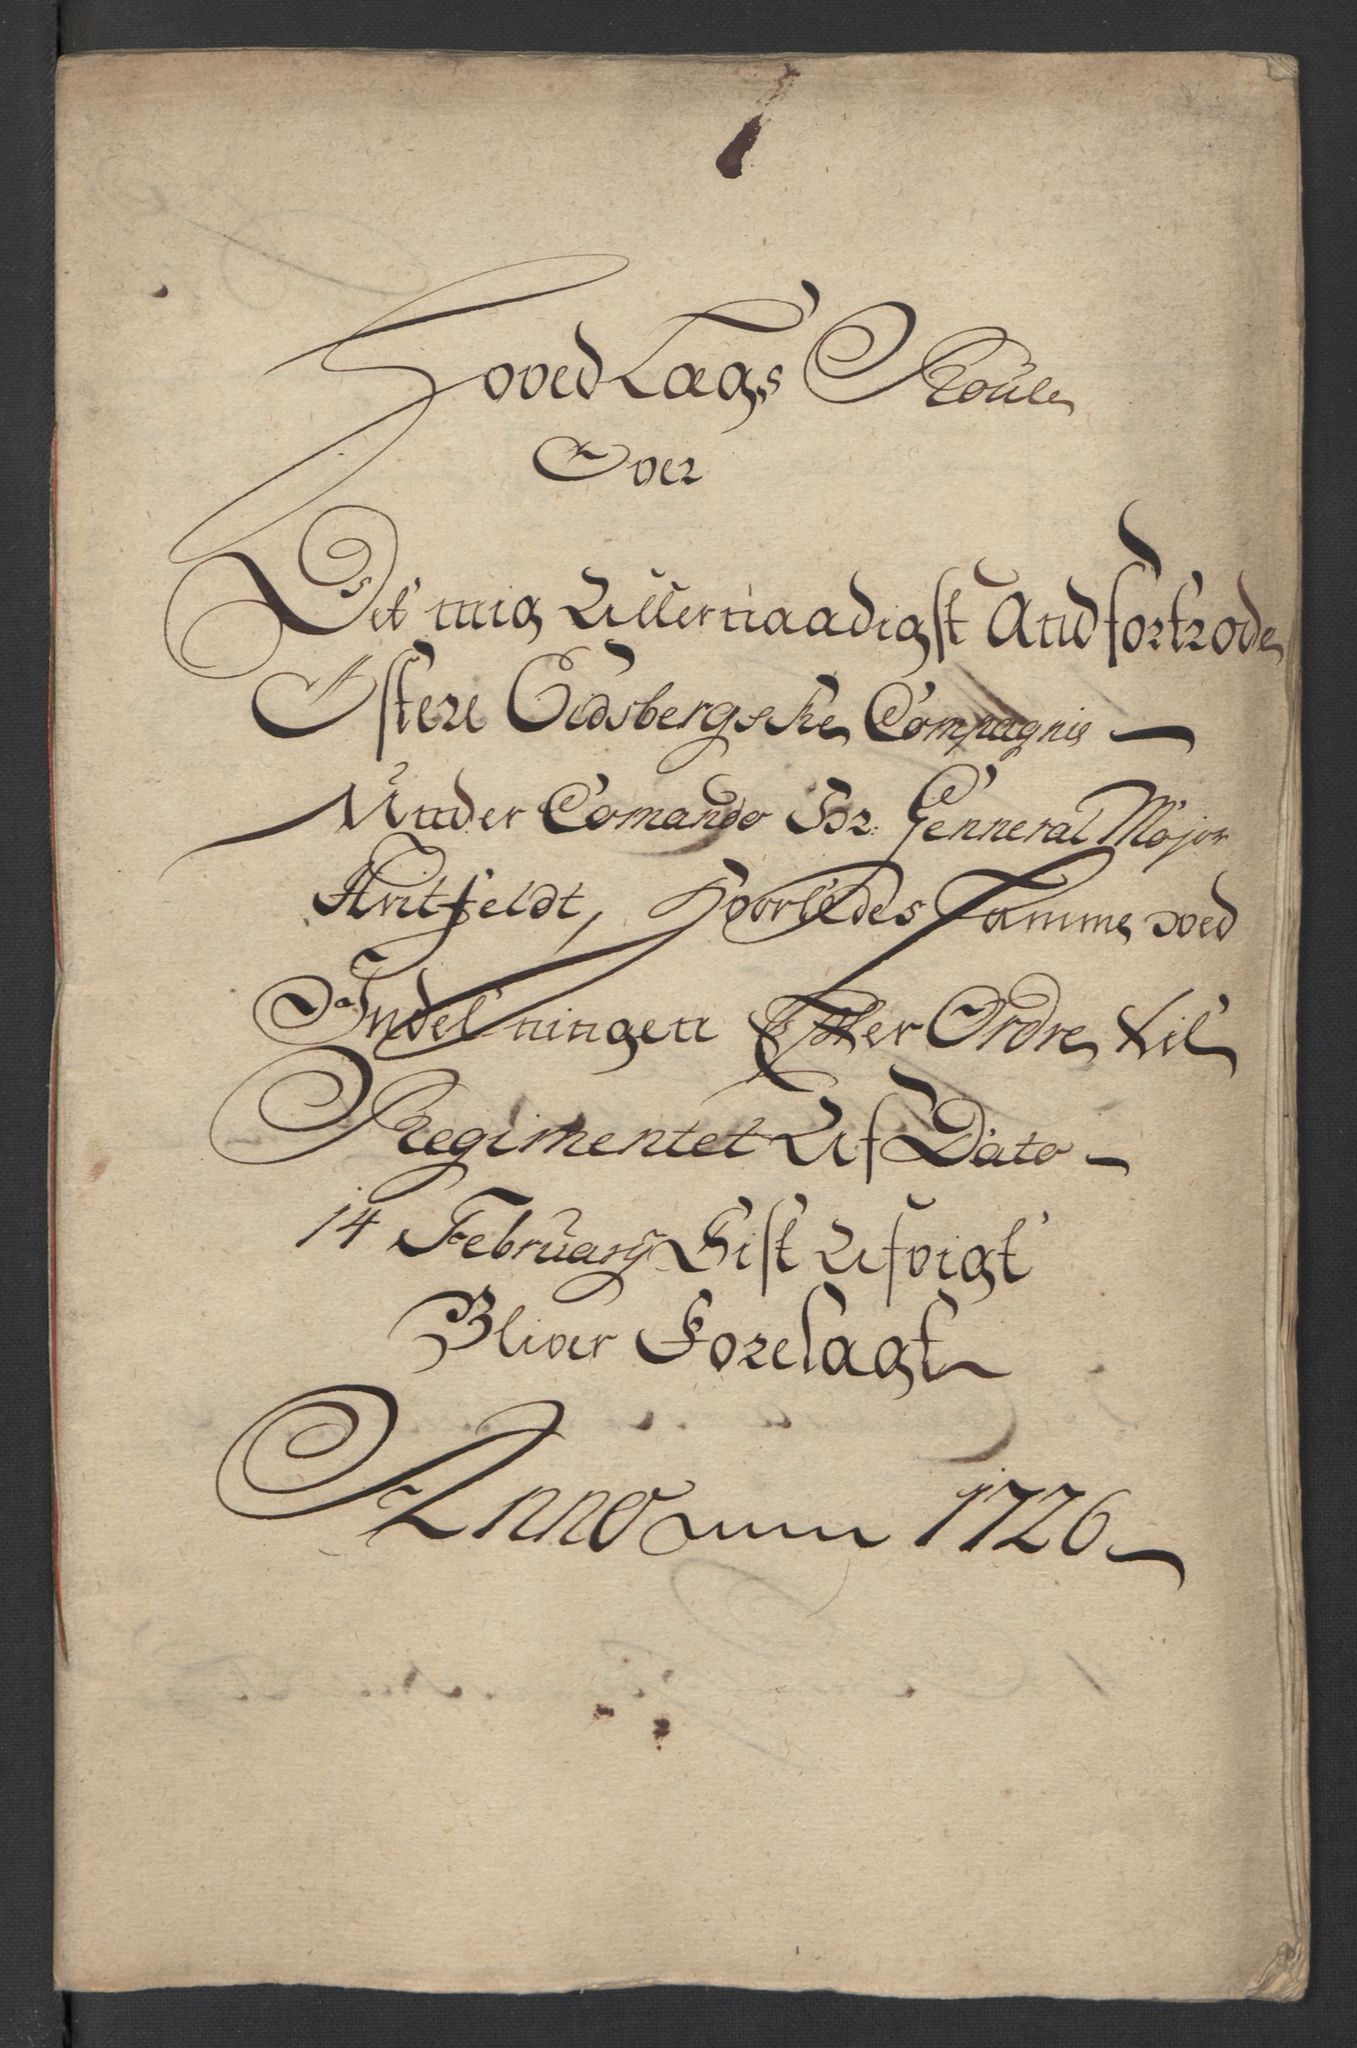 Hoved Lægs Roule
Over
Det mig Allernaadigst Andfortrode
Østere Eidsbergske Compagnie
Under Comando Hr: Genneral Major
Hvitfeldt, Hvorledes Samme ved
Indelningen Efter Ordre til
Regimentet Af Dato
14 February Sist Afvigt
Bliver Forelagt
Anno 1726